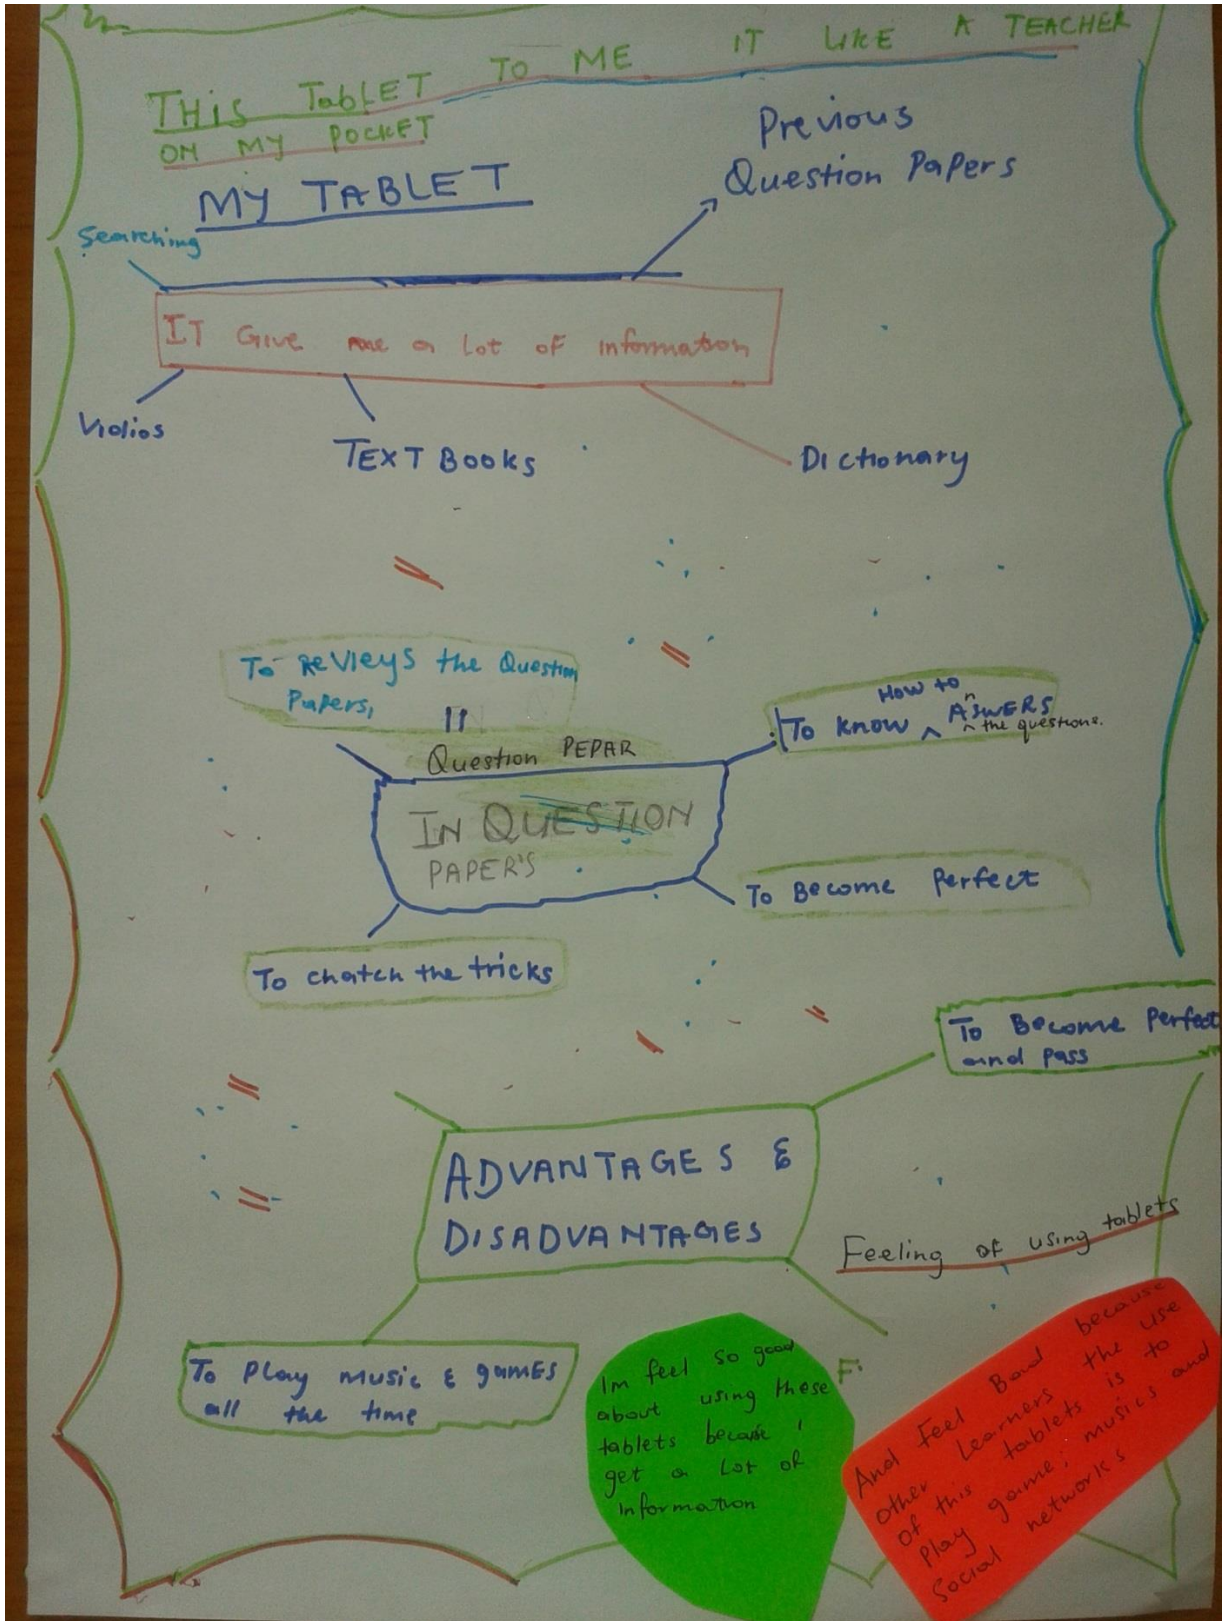 THiS TabLET TO ME IT LIKE A TEACHER
ON MY POCKET
MY TABLET
Previous
Question Papers
Searching
IT GIVE me a Lot OF information
Vidios
TEXT BOOKS
Dictionary
To ReVieys the Question
Papers,
Question PEPAR
IN QUESTION
PAPER'S
How to
To know ^ AnSWERS
the questions.
To Become Perfect
To chatch the tricks
To Become Perfect
and pass
ADVANTAGES &
DISADVANTAGES
Feeling of using tablets
To Play music & games
all the time
Im feel so good
about using these
tablets because i
get a Lot of
information
F
And Feel Bad because
other Learners the use
of this tablets is to
Play game, musics and
Social networks